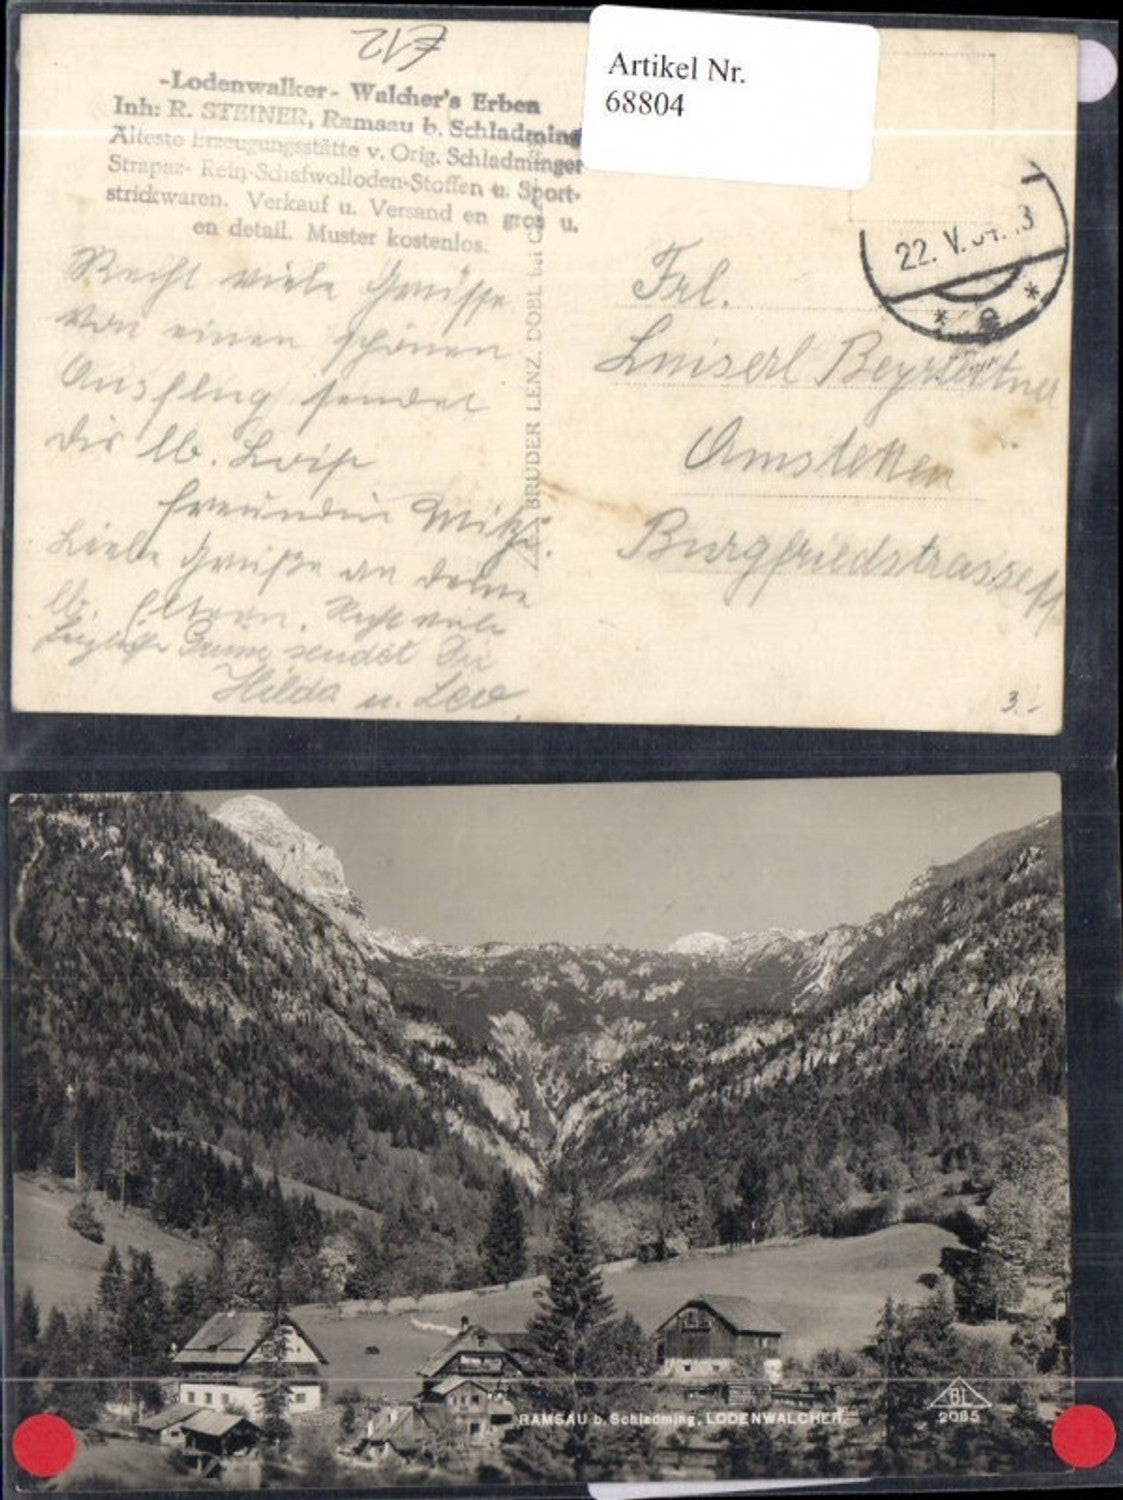 E12
Artikel Nr.
68804
-Lodenwalker- Walcher's Erben
Inh: R. STEINER, Ramsau b. Schladming
Älteste Erzeugungsstätte v. Orig. Schladminger
Strapaz- Rein-Schafwolloden-Stoffen u. Sport-
strickwaren. Verkauf u. Versand en gros u.
en detail. Muster kostenlos.
Recht viele Grüsse
von einen schönen
Ausflug sendet
dir lb. Loisi
Freundin Mitzi.
Liebe Grüße an deine
lb. Eltern. Recht viele
sendet Dir
Hilda u. Leo
BRÜDER LENZ, DOBL bei
22. V.
Frl.
Luiserl
Amstetten
Burgfriedstrasse
3.-
RAMSAU b. Schladming, LODENWALCHER.
BL
2085